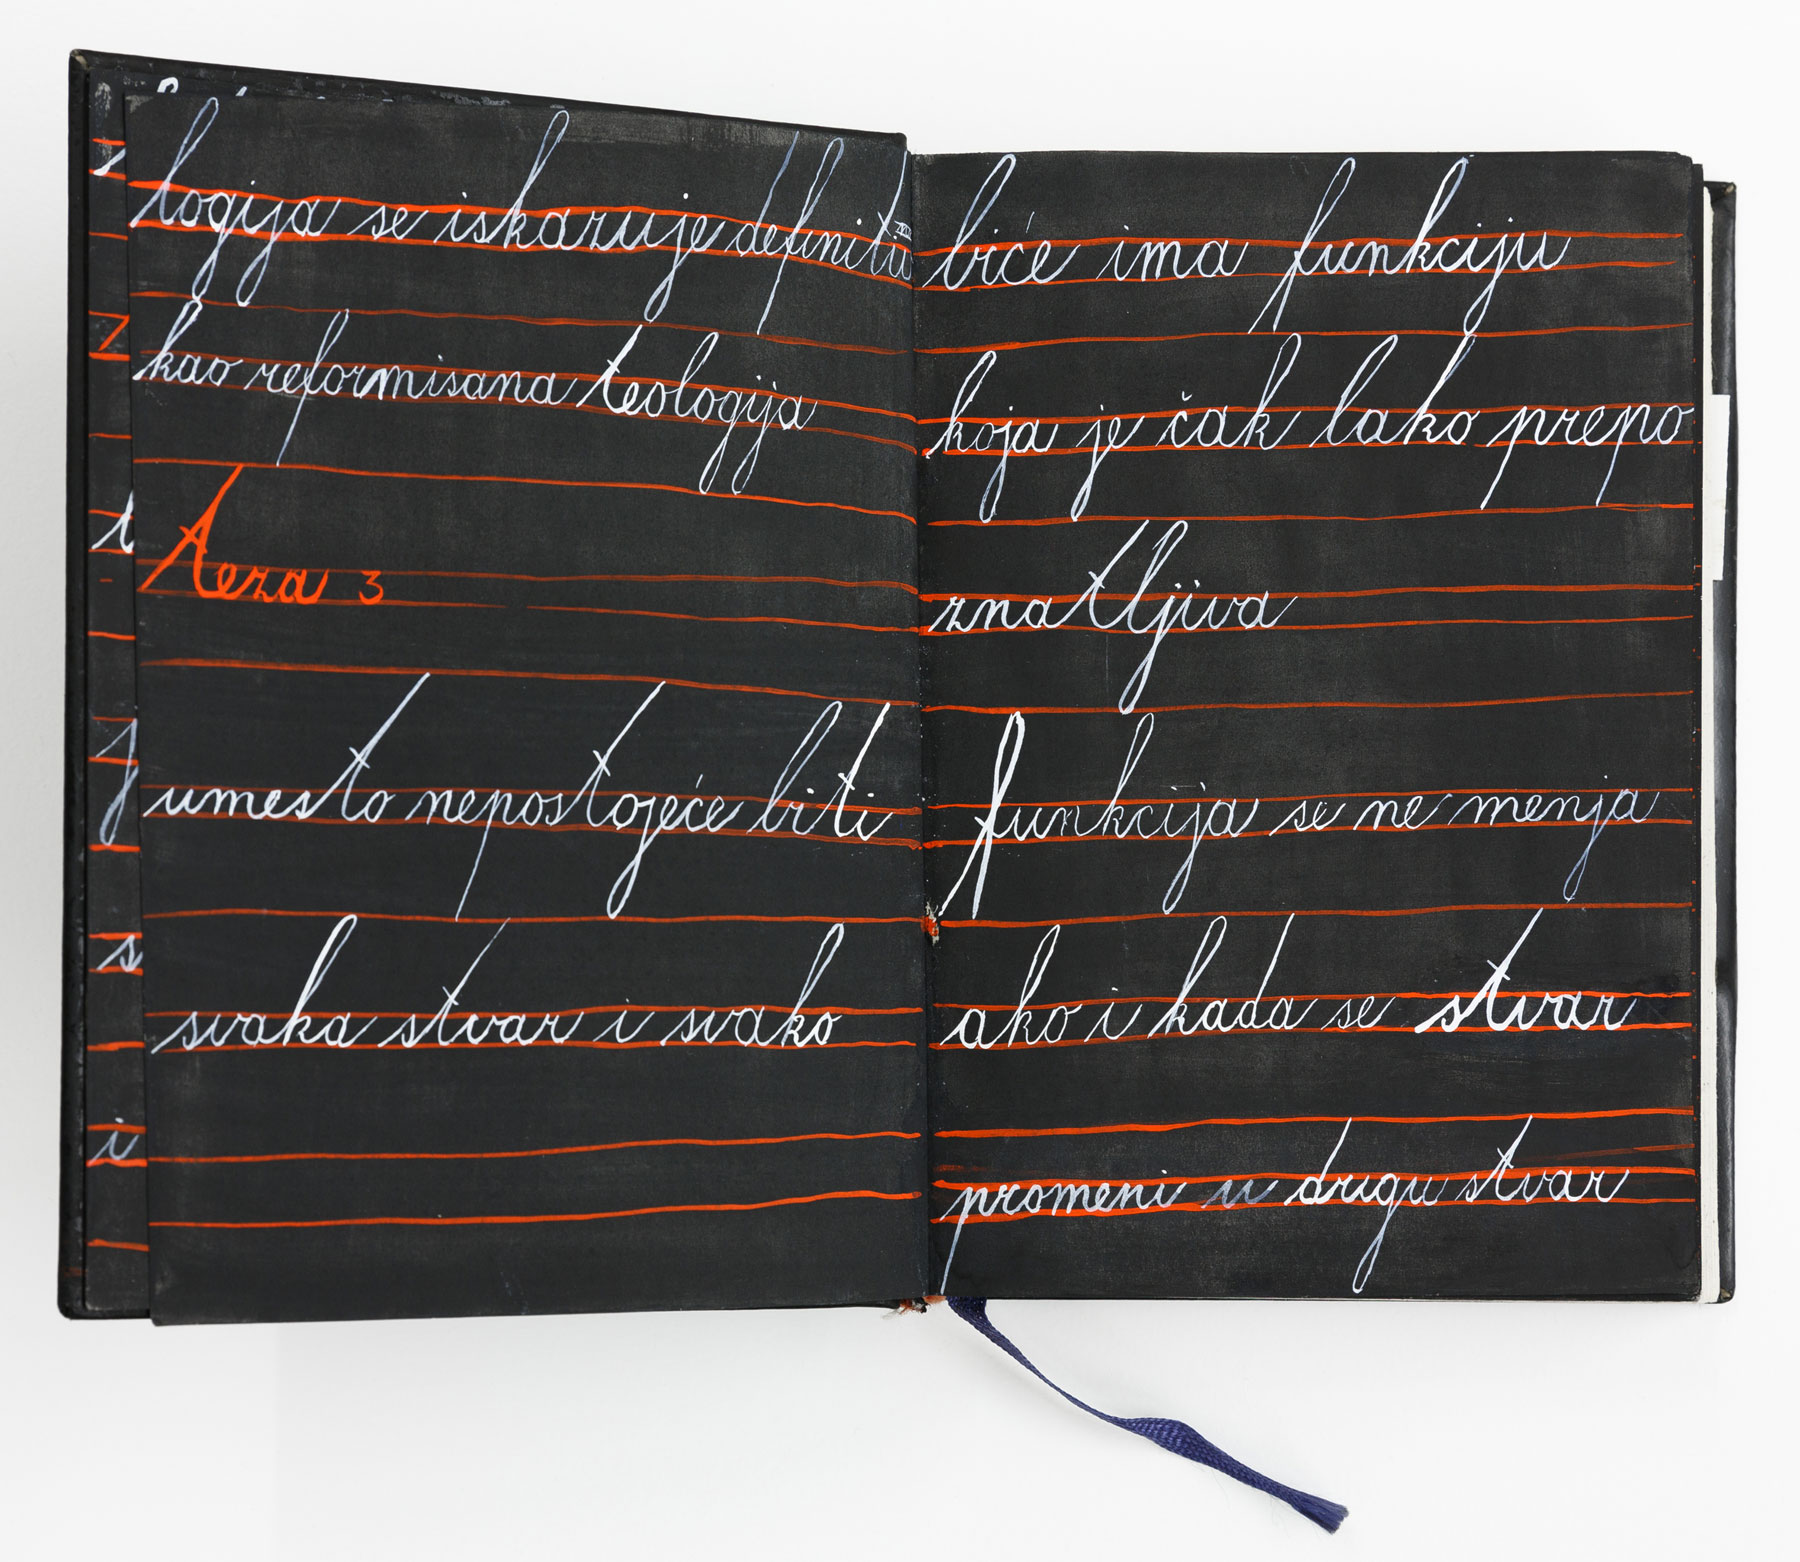 logija se iskazuje definitiv
kao reformisana teologija
teza 3
umesto nepostojeće biti
svaka stvar i svako
biće ima funkciju
koja je čak lako prepo
znatljiva
funkcija se ne menja
ako i kada se stvar
promeni u drugu stvar